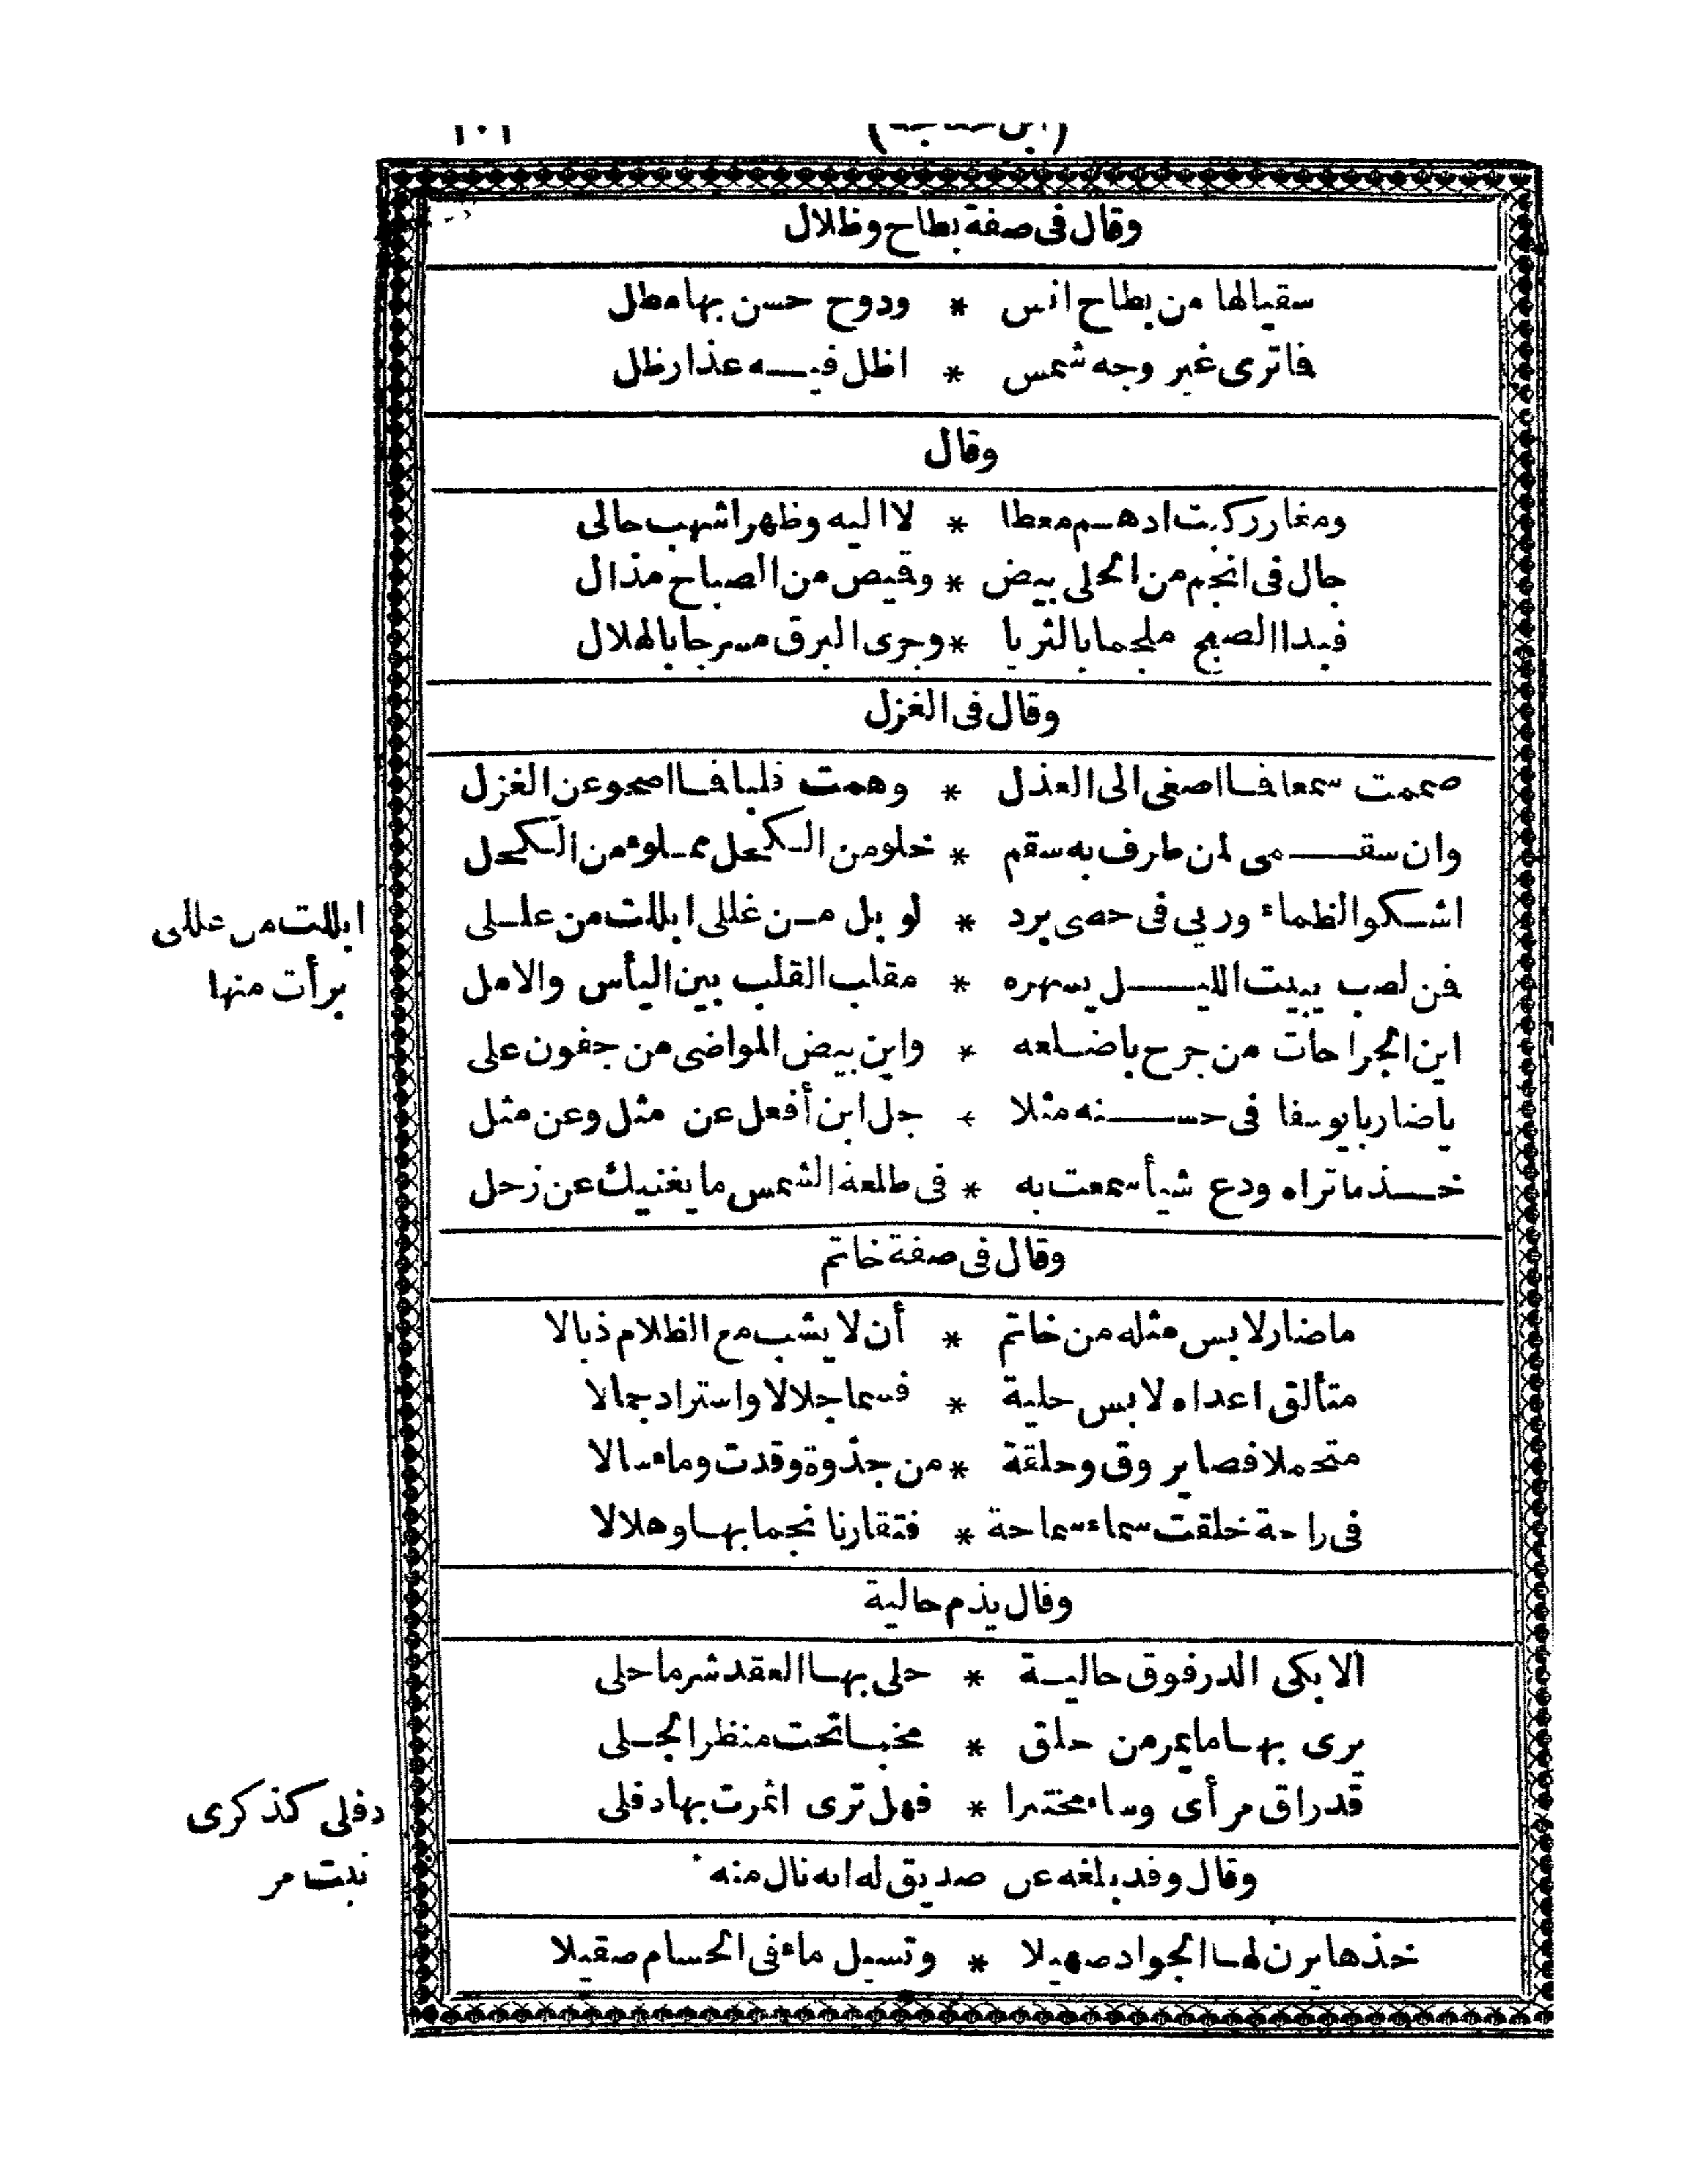 ١٠١
وقال فى صفة بطاح وظلال
سقيالها من بطاح انس * ودوح حسن بها مطل
فاترى غير وجه شمس * اظل فيه عذار ظل
وقال
ومغار ركبت ادهم معطا * لا اليه وظهر اشهب حالى
جال فى انجم من الحلى بيض * وقيص من الصباح مذال
فبدا الصبح ملجما بالثريا * وجرى البرق مسرجا بالهلال
وقال فى الغزل
صممت سمعا فا اصغى الى العذل * وهمت قلبا فا اصحو عن الغزل
وان سقمى لمن طرف به سقم * خلو من الكحل مملوء من الكحل
اشكو الظماء وريى فى حمى برد * لو بل من غللى ابللت من عللى
فن لصب يبيت الليل يسهره * مقلب القلب بين اليأس والامل
اين الجراحات من جرح باضلعه * واين بيض المواضى من جفون على
ياضاربا يوسفا فى حسنه مثلا * جل ابن أفعل عن مثل وعن مثل
خذ ماتراه ودع شيأ سمعت به * فى طلعة الشمس ما يغنيك عن زحل
ابللت من عللى
برأت منها
وقال فى صفة خاتم
ماضار لابس مثله من خاتم * أن لا يشب مع الظلام ذبالا
متألق اعداه لابس حلية * فسما جلالا واستراد جمالا
متحملا فصا يروق وحلقة * من جذوة وقدت وماء سالا
فى راحة خلقت سماء سماحة * فتقارنا نجما بها وهلالا
وقال يذم حالية
الا بكى الدر فوق حالية * حلى بها العقد شر ما حلى
يرى بها مايمر من حلق * مخبا تحت منظر الجلى
قد راق مرأى وساء مختبرا * فهل ترى اثمرت بها دفلى
دفلى كذكرى
نبت مر
وقال وقد بلغه عن صديق له انه نال منه
خذها يرن لها الجواد صهيلا * وتسيل ماء فى الحسام صقيلا